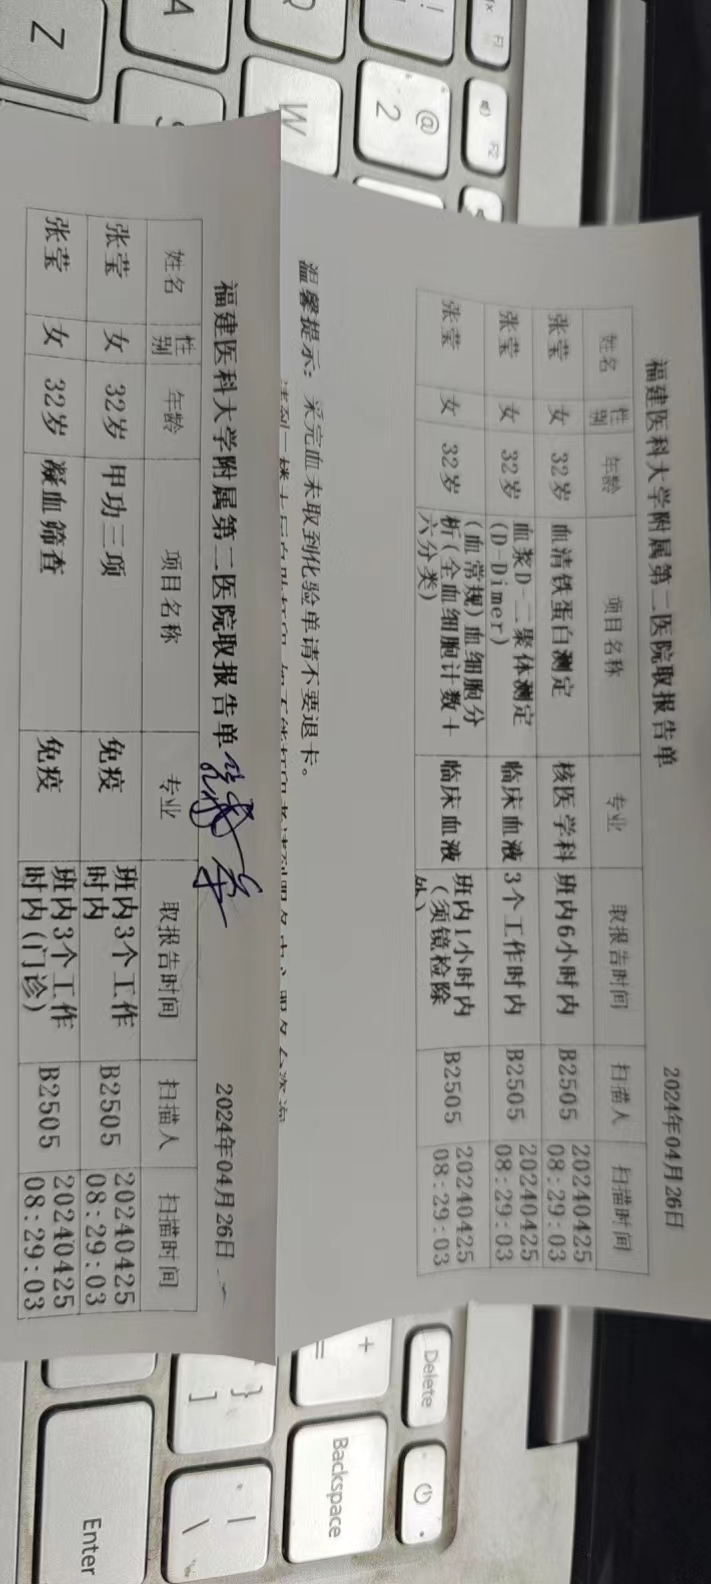 福建医科大学附属第二医院取报告单
2024年04月26日
姓名 性别 年龄 项目名称 专业 取报告时间 扫描人 扫描时间
张莹 女 32岁 血清铁蛋白测定 核医学科 班内6小时内 B2505 20240425 08:29:03
张莹 女 32岁 血浆D-二聚体测定(D-Dimer) 临床血液 3个工作时内 B2505 20240425 08:29:03
张莹 女 32岁 (血常规)血细胞分析(全血细胞计数+六分类) 临床血液 班内1小时内(须镜检除外) B2505 20240425 08:29:03
温馨提示: 采完血未取到化验单请不要退卡。
福建医科大学附属第二医院取报告单
2024年04月26日
姓名 性别 年龄 项目名称 专业 取报告时间 扫描人 扫描时间
张莹 女 32岁 甲功三项 免疫 班内3个工作时内 B2505 20240425 08:29:03
张莹 女 32岁 凝血筛查 免疫 班内3个工作时内(门诊) B2505 20240425 08:29:03
F1
F2
! 
@ 2
Q
W
A
S
Z
Delete
+ =
Backspace
} ]
| \
Enter